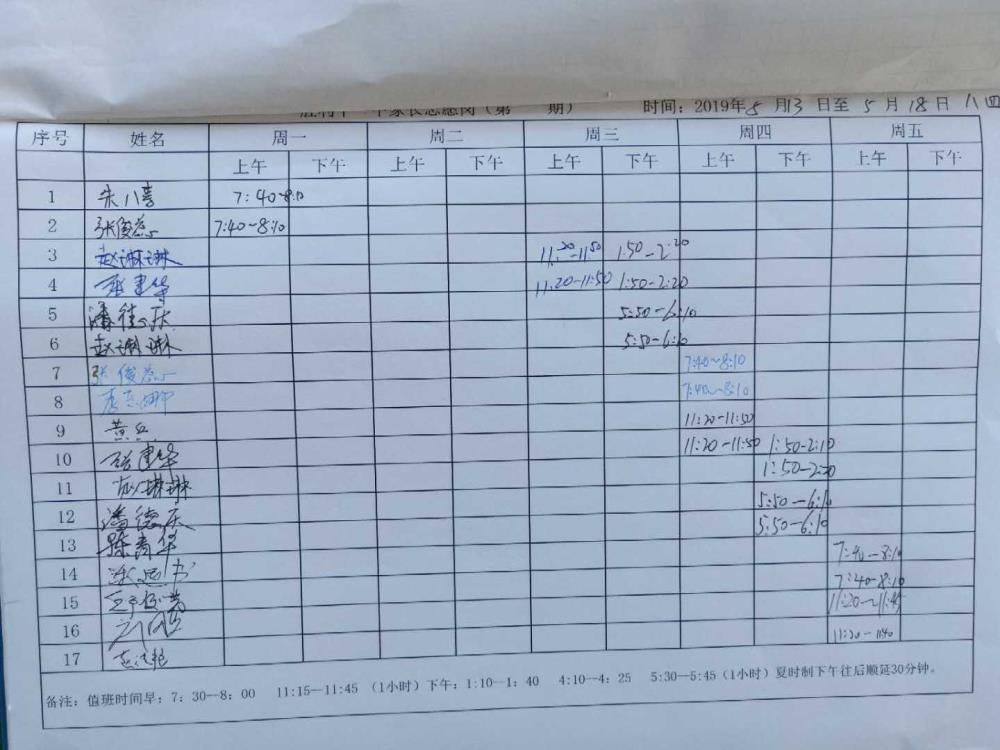 家长志愿岗（第 期） 时间：2019年5月13日至5月18日 八四
序号 姓名 周一 周二 周三 周四 周五
上午 下午 上午 下午 上午 下午 上午 下午 上午 下午
1 朱八喜 7:40-8:10
2 张俊蕊 7:40-8:10
3 赵琳琳 11:20-11:50 1:50-2:20
4 建华 11:20-11:50 1:50-2:20
5 潘德庆 5:50-6:10
6 赵琳琳 5:50-6:10
7 张俊蕊 7:40-8:10
8 7:40-8:10
9 黄兵 11:20-11:50
10 建华 11:20-11:50 1:50-2:10
11 赵琳琳 1:50-2:20
12 潘德庆 5:50-6:10
13 陈青华 5:50-6:10
7:40-8:10
14
15 7:40-8:10
11:20-11:45
16 11:20-11:40
17
备注：值班时间早：7：30--8：00 11:15--11:45 （1小时）下午：1:10--1：40 4:10--4：25 5:30--5:45（1小时）夏时制下午往后顺延30分钟。